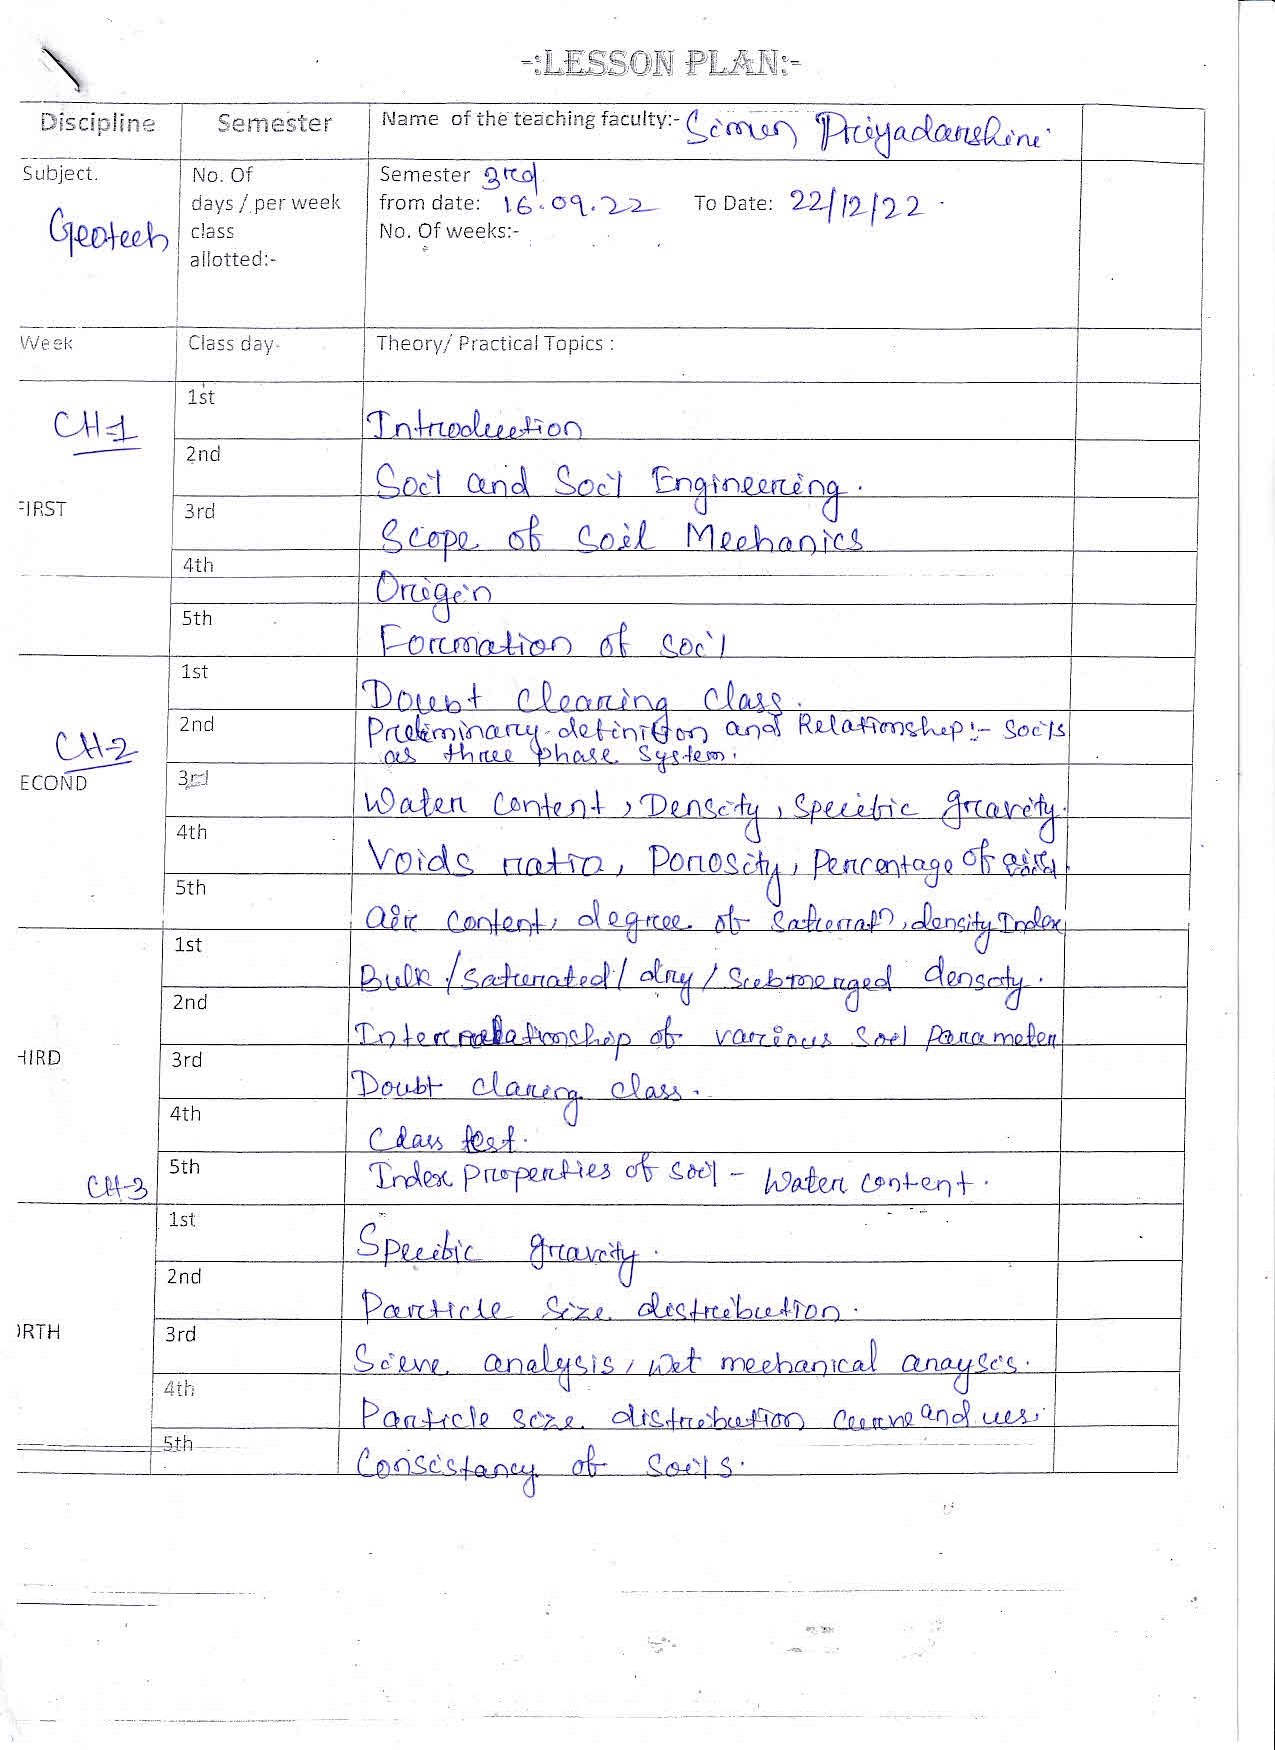 -:LESSON PLAN:-
Discipline
Semester
Name of the teaching faculty:- Simen Priyadarshini
Subject.
Geotech
No. Of
days / per week
class
allotted:-
Semester 3rd
from date: 16.09.22 To Date: 22/12/22
No. Of weeks:-
Week
Class day
Theory/ Practical Topics :
CH-1
FIRST
1st
Introduction
2nd
Soil and Soil Engineering.
3rd
Scope of Soil Mechanics
4th
Origin
5th
Formation of soil
CH-2
ECOND
1st
Doubt clearing class.
2nd
Preliminary definition and Relationship:- Soils
as three phase system.
3rd
Water content, Density, Specific gravity.
4th
Voids ratio, Porosity, Percentage of
5th
air content, degree of saturatn, density Index
HIRD
1st
Bulk/saturated/dry/submerged density.
2nd
Interrelationship of various soil parameter
3rd
Doubt claring class.
4th
Class test.
CH-3
5th
Index properties of soil - Water content.
ORTH
1st
Specific gravity.
2nd
Particle size distribution.
3rd
Sieve analysis, wet mechanical anaysis.
4th
Particle size distribution curve and ues.
5th
Consistancy of Soils.